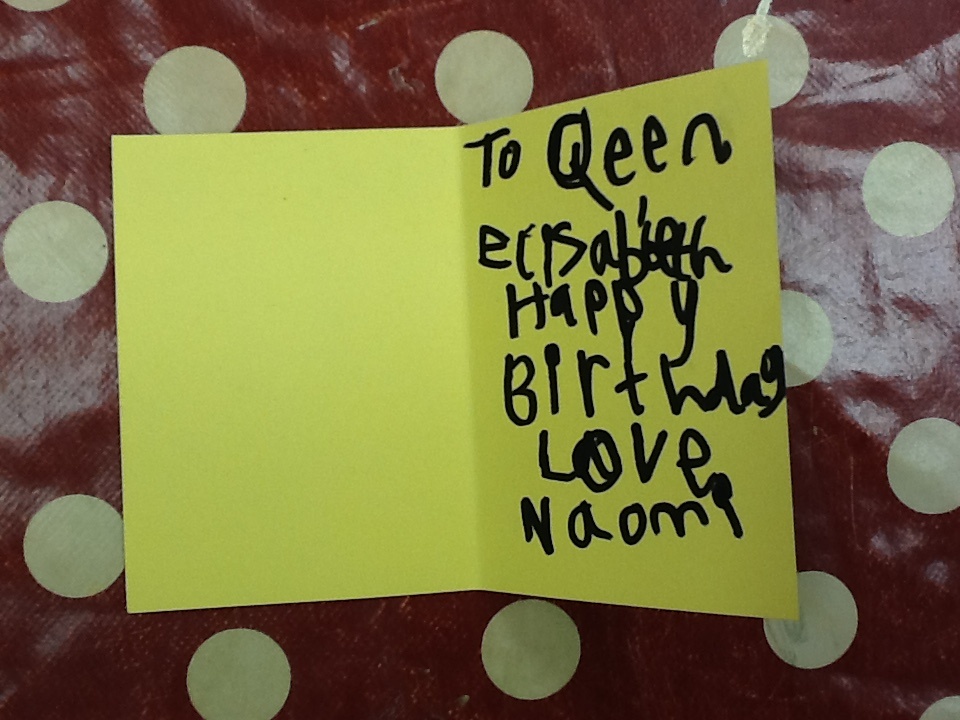 To Qeen
elisabeth
Happy
Birthday
Love
Naomi